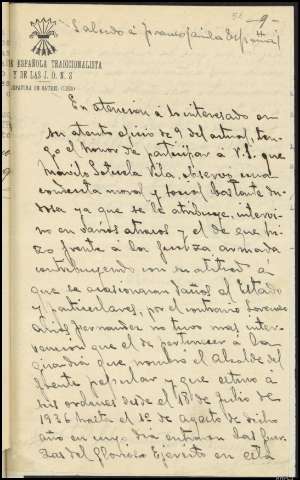 9
Saludo á Franco ¡Arriba España!
ESPAÑOLA TRADICIONALISTA
Y DE LAS J. O. N. S.
En atención á lo interesado en
su atento oficio de 9 del actual, ten-
go el honor de participar á V.S. que
Manilo Vila, observó una
conducta moral y social bastante du-
dosa ya que se le atribuye, intervi-
no en varios atracos y el de que hi-
zo frente á la fuerza armada
contribuyendo con su actitud á
que se ocasionaran daños al Estado
y particulares, por el contrario Lorenzo
Hernandez no tuvo mas inter-
vencion que el de pertenecer á la
guardia que nombró el Alcalde del
frente popular y que estuvo á
sus ordenes desde el 18 de Julio de
1936 hasta el 12 de Agosto de dicho
año en cuyo dia entraron las fuer-
zas del Glorioso Ejército en esta